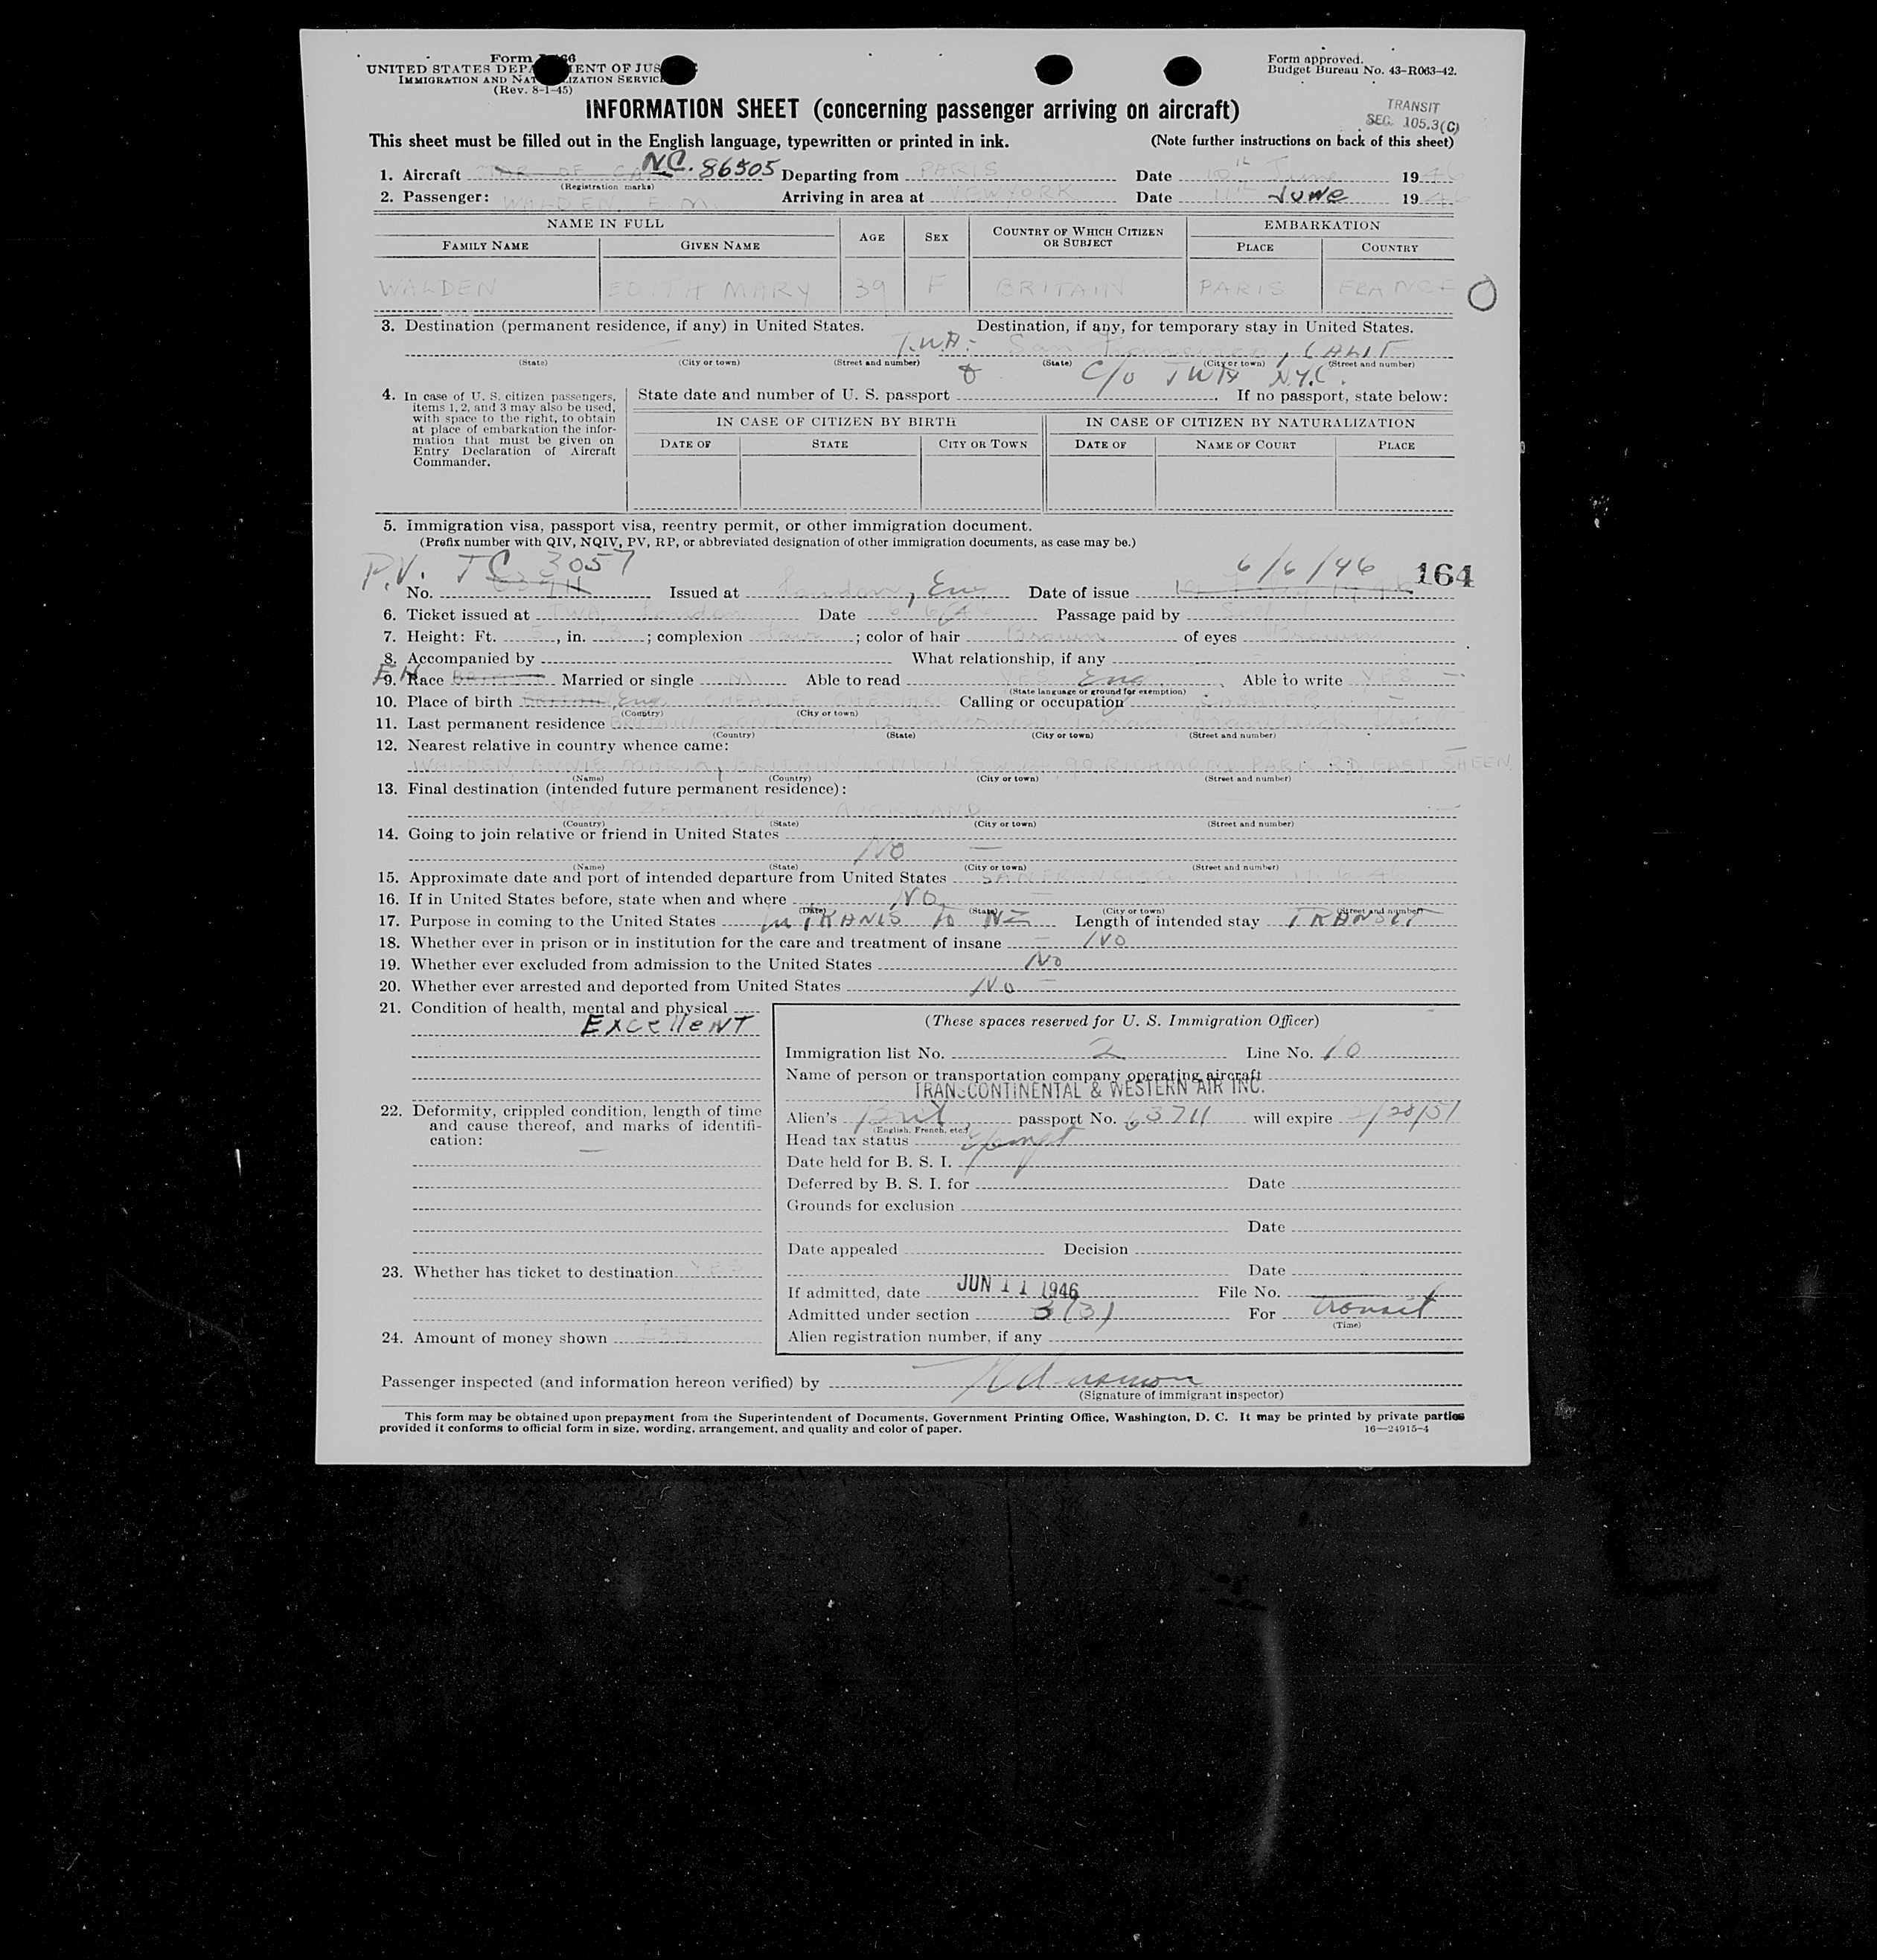 Form
UNITED STATES DEPA ENT OF JUS
IMMIGRATION AND NAT IZATION SERVIC
(Rev. 8-1-45)
Form approved.
Budget Bureau No. 43-R063-42.
INFORMATION SHEET (concerning passenger arriving on aircraft)
TRANSIT
SEC. 105.3(C)
This sheet must be filled out in the English language, typewritten or printed in ink. (Note further instructions on back of this sheet)
1. Aircraft STAR OF N.C. 86505 Departing from PARIS Date 10th June 1946
(Registration marks)
2. Passenger: WALDEN, E. M. Arriving in area at NEW YORK Date 11th June 1946
NAME IN FULL AGE SEX COUNTRY OF WHICH CITIZEN OR SUBJECT EMBARKATION
FAMILY NAME GIVEN NAME PLACE COUNTRY
WALDEN EDITH MARY 39 F BRITAIN PARIS FRANCE
3. Destination (permanent residence, if any) in United States. Destination, if any, for temporary stay in United States.
T.W.A. San Francisco, CALIF
(State) (City or town) (Street and number) (State) (City or town) (Street and number)
C/O TWA N.Y.C.
4. In case of U. S. citizen passengers, items 1, 2, and 3 may also be used, with space to the right, to obtain at place of embarkation the information that must be given on Entry Declaration of Aircraft Commander.
State date and number of U. S. passport . If no passport, state below:
IN CASE OF CITIZEN BY BIRTH IN CASE OF CITIZEN BY NATURALIZATION
DATE OF STATE CITY OR TOWN DATE OF NAME OF COURT PLACE
5. Immigration visa, passport visa, reentry permit, or other immigration document.
(Prefix number with QIV, NQIV, PV, RP, or abbreviated designation of other immigration documents, as case may be.)
P.V. TC 3057 6/6/46 164
No. Issued at London, Eng Date of issue
6. Ticket issued at TWA London Date Passage paid by Self
7. Height: Ft. 5, in. 3; complexion fair; color of hair Brown of eyes Brown
8. Accompanied by What relationship, if any
9. Race Married or single Able to read YES Eng. Able to write YES
(State language or ground for exemption)
10. Place of birth Eng. CHEADLE Calling or occupation
(Country) (City or town)
11. Last permanent residence
(Country) (State) (City or town) (Street and number)
12. Nearest relative in country whence came:
WALDEN, ANNIE MARIA, BRITAIN, LONDON 99 RICHMOND PARK RD, EAST SHEEN
(Name) (Country) (City or town) (Street and number)
13. Final destination (intended future permanent residence):
NEW ZEALAND
(Country) (State) (City or town) (Street and number)
14. Going to join relative or friend in United States
No —
(Name) (State) (City or town) (Street and number)
15. Approximate date and port of intended departure from United States SAN FRANCISCO
16. If in United States before, state when and where NO
(Date) (State) (City or town) (Street and number)
17. Purpose in coming to the United States In TRANIS TO NZ Length of intended stay TRANSIT
18. Whether ever in prison or in institution for the care and treatment of insane — NO
19. Whether ever excluded from admission to the United States No
20. Whether ever arrested and deported from United States No —
21. Condition of health, mental and physical
EXcelleNT
(These spaces reserved for U. S. Immigration Officer)
Immigration list No. 2 Line No. 10
Name of person or transportation company operating aircraft
TRANSCONTINENTAL & WESTERN AIR INC.
22. Deformity, crippled condition, length of time and cause thereof, and marks of identification: —
Alien's Brit passport No. 63711 will expire 2/28/51
(English, French, etc.)
Head tax status Exempt
Date held for B. S. I.
Deferred by B. S. I. for Date
Grounds for exclusion
Date
Date appealed Decision
23. Whether has ticket to destination YES
Date
If admitted, date JUN 11 1946 File No.
Admitted under section 3(3) For transit
(Time)
24. Amount of money shown
Alien registration number, if any
Passenger inspected (and information hereon verified) by
(Signature of immigrant inspector)
This form may be obtained upon prepayment from the Superintendent of Documents, Government Printing Office, Washington, D. C. It may be printed by private parties
provided it conforms to official form in size, wording, arrangement, and quality and color of paper. 16—24915-4